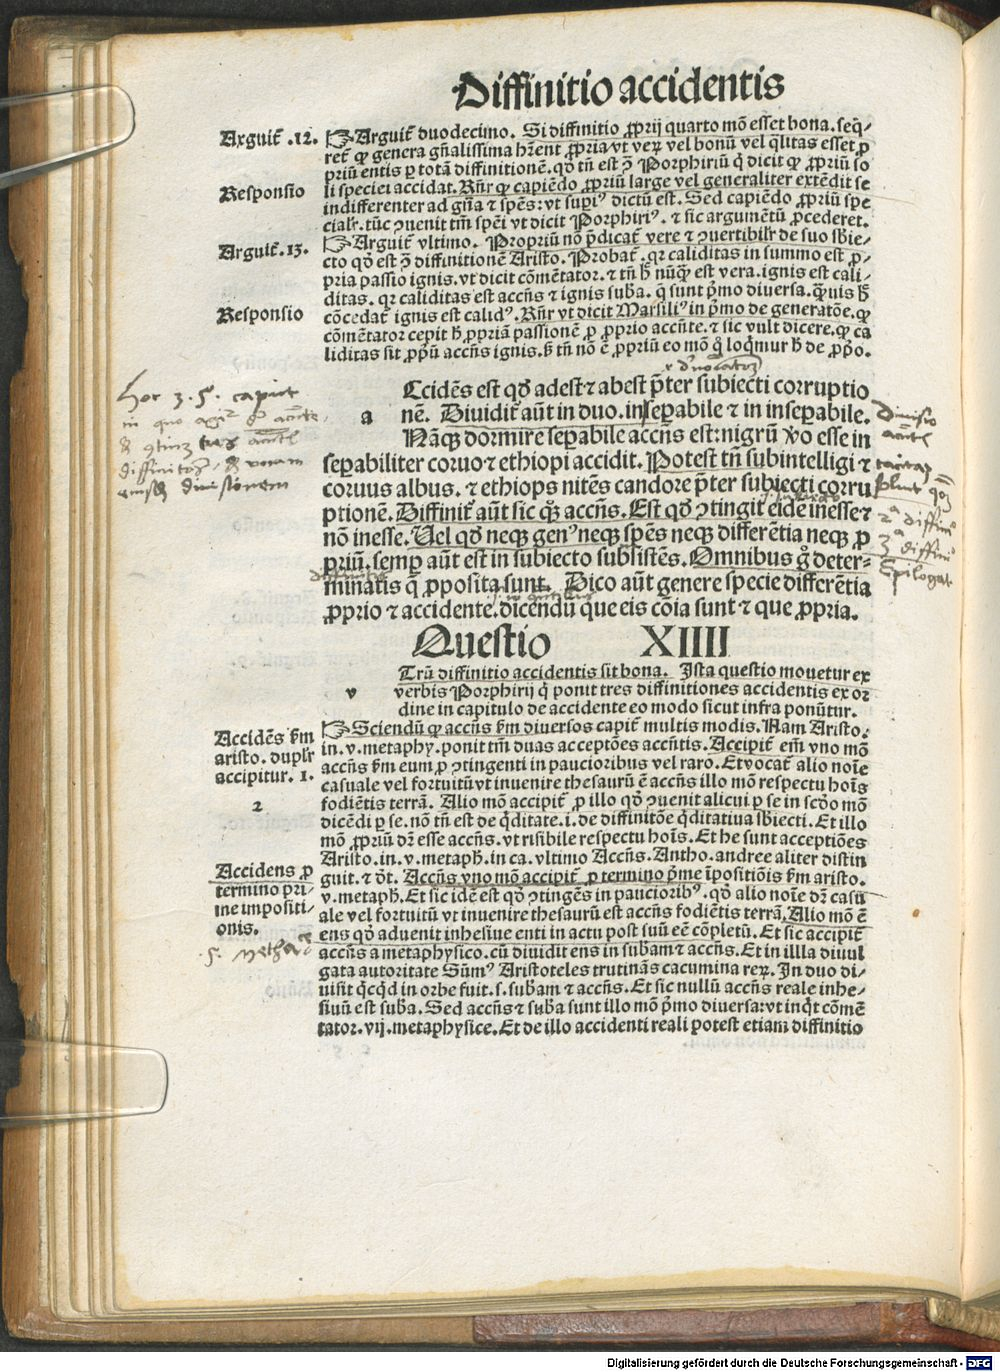 Diffinitio accidentis
Arguit̃ .12.
☞Arguit̃ duodecimo. Si diffinitio ꝓprij quarto mõ esset bona. seq̃-
ret̃ ꝙ genera gñalissima hr̃ent ꝓpria vt veꝝ vel bonũ vel q̃litas esset ꝓ
priũ entis ꝑ totã diffinitionẽ. qđ tñ est ꝯ̃ Porphiriũ q̃ dicit ꝙ ꝓpriũ so
Responsio
li speciei accidat. Rñr ꝙ capiẽdo ꝓpriũ large vel generaliter extẽdit se
indifferenter ad gña ⁊ spẽs: vt supiꝰ dictũ est. Sed capiẽdo ꝓpriũ spe
cialr̃. tũc ꝯuenit tm̃ spẽi vt dicit Porphiriꝰ. ⁊ sic argumẽtũ ꝓcederet.
Arguit̃ .13.
☞Arguit̃ vltimo. Propriũ nõ p̃dicat̃ vere ⁊ ꝯuertibilr̃ de suo sb̃ie-
cto qđ est ꝯ̃ diffinitionẽ Aristo. Probat̃. qꝛ caliditas in summo est ꝓ-
pria passio ignis. vt dicit cõmẽtator. ⁊ tñ h̃ nũq̃ est vera. ignis est cali-
ditas. qꝛ caliditas est accñs ⁊ ignis sub̃a. q̃ sunt p̃mo diuersa. q̃uis h̃
Responsio
cõcedat̃ ignis est calidꝰ. Rñr vt dicit Marsiliꝰ in p̃mo de generatõe. ꝙ
cõmẽtator cepit h̃ ꝓpriã passionẽ ꝓ ꝓprio accñte. ⁊ sic vult dicere. ꝙ ca
liditas sit ꝓpũ accñs ignis. h̃ tñ nõ ẽ ꝓpriũ eo mõ q̃ loq̃mur h̃ de ꝓpo.
hoc 3. 5. caput
in quo
diffinitões
eiusdẽ diuisionem
a
Ccidẽs est qđ adest ⁊ abest p̃ter subiecti corruptio
nẽ. Diuidit̃ aũt in duo. in seꝑabile ⁊ in inseꝑabile.
Nãqꝫ dormire seꝑabile accñs est: nigrũ v̊o esse in
seꝑabiliter coruo ⁊ ethiopi accidit. Potest tñ subintelligi ⁊
coruus albus. ⁊ ethiops nitẽs candore p̃ter subiecti corru
ptionẽ. Diffinit̃ aũt sic qꝫ accñs. Est qđ ꝯtingit eidẽ inesse ⁊
nõ inesse. Uel qđ neqꝫ genꝰ neqꝫ spẽs neqꝫ differẽtia neqꝫ ꝓ
priũ. semꝑ aũt est in subiecto subsistẽs. Omnibus g̊ deter-
minatis q̃ ꝓposita sunt. Dico aũt genere specie differẽtia
ꝓprio ⁊ accidente. dicendũ que eis cõia sunt ⁊ que ꝓpria.
diuisio
accñtis
2ᵃ diffini
3ᵃ diffini
Epilogat
Questio XIIII
v
Trũ diffinitio accidentis sit bona. Ista questio mouetur ex
verbis Porphirij q̃ ponit tres diffinitiones accidentis ex or
dine in capitulo de accidente eo modo sicut infra ponũtur.
Accidẽs ẜm
aristo. duplr̃
accipitur. 1.
2
☞Sciendũ ꝙ accñs ẜm diuersos capit̃ multis modis. Nam Aristo.
in .v. metaphy. ponit tm̃ duas acceptões accñtis. Accipit̃ em̃ vno mõ
accñs ẜm eum ꝓ ꝯtingenti in paucioribus vel raro. Et vocat̃ alio noĩe
casuale vel fortuitũ vt inuenire thesaurũ ẽ accñs illo mõ respectu hoĩs
fodiẽtis terrã. Alio mõ accipit̃ ꝓ illo qđ ꝯuenit alicui ꝑ se in scđo mõ
dicẽdi ꝑ se. nõ tñ est de q̃ditate .i. de diffinitõe q̃ditatiua sb̃iecti. Et illo
mõ ꝓpriũ dr̃ esse accñs. vt risibile respectu hoĩs. Et he sunt acceptiões
Aristo. in .v. metaph̃. in ca. vltimo Accñs. Antho. andree aliter distin
Accidens ꝓ
termino pri-
me impositi-
onis.
5. methace
guit. ⁊ đt. Accñs vno mõ accipit̃ ꝓ termino p̃me ĩpositiõis ẜm aristo.
v. metaph̃. Et sic idẽ est qđ ꝯtingẽs in paucioribꝰ. qđ alio noĩe dr̃ casu
ale vel fortuitũ vt inuenire thesaurũ est accñs fodiẽtis terrã. Alio mõ ẽ
ens qđ aduenit inhesiue enti in actu post suũ eẽ cõpletũ. Et sic accipit̃
accñs a metaphysico. cũ diuidit ens in subam ⁊ accñs. Et in illla diuul
gata autoritate Sũmꝰ Aristoteles trutinãs cacumina reꝝ. In duo di-
uisit q̃cq̃d in orbe fuit. s. subam ⁊ accñs. Et sic nullũ accñs reale inhe-
siuũ est suba. Sed accñs ⁊ suba sunt illo mõ p̃mo diuersa: vt inq̃t cõmẽ
tator. vij. metaphysice. Et de illo accidenti reali potest etiam diffinitio
Digitalisierung gefördert durch die Deutsche Forschungsgemeinschaft - DFG